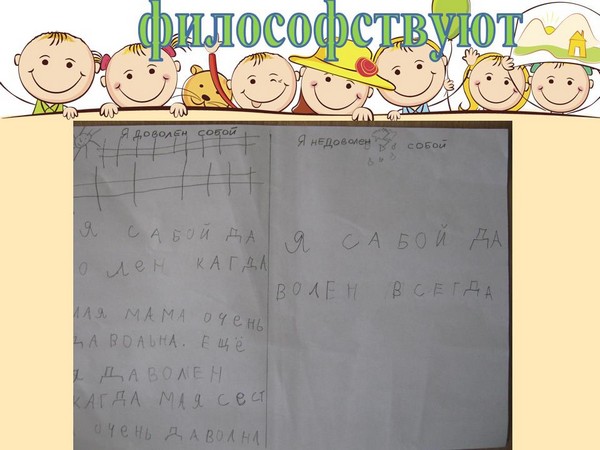 философствуют
Я ДОВОЛЕН СОБОЙ
Я САБОЙ ДА
ВОЛЕН КАГДА
МАЯ МАМА ОЧЕНЬ
ДАВОЛЬНА. ЕЩЁ
Я ДАВОЛЕН
КАГДА МАЯ СЕСТ
ОЧЕНЬ ДАВОЛНА
Я НЕДОВОЛЕН СОБОЙ
Я САБОЙ ДА
ВОЛЕН ВСЕГДА